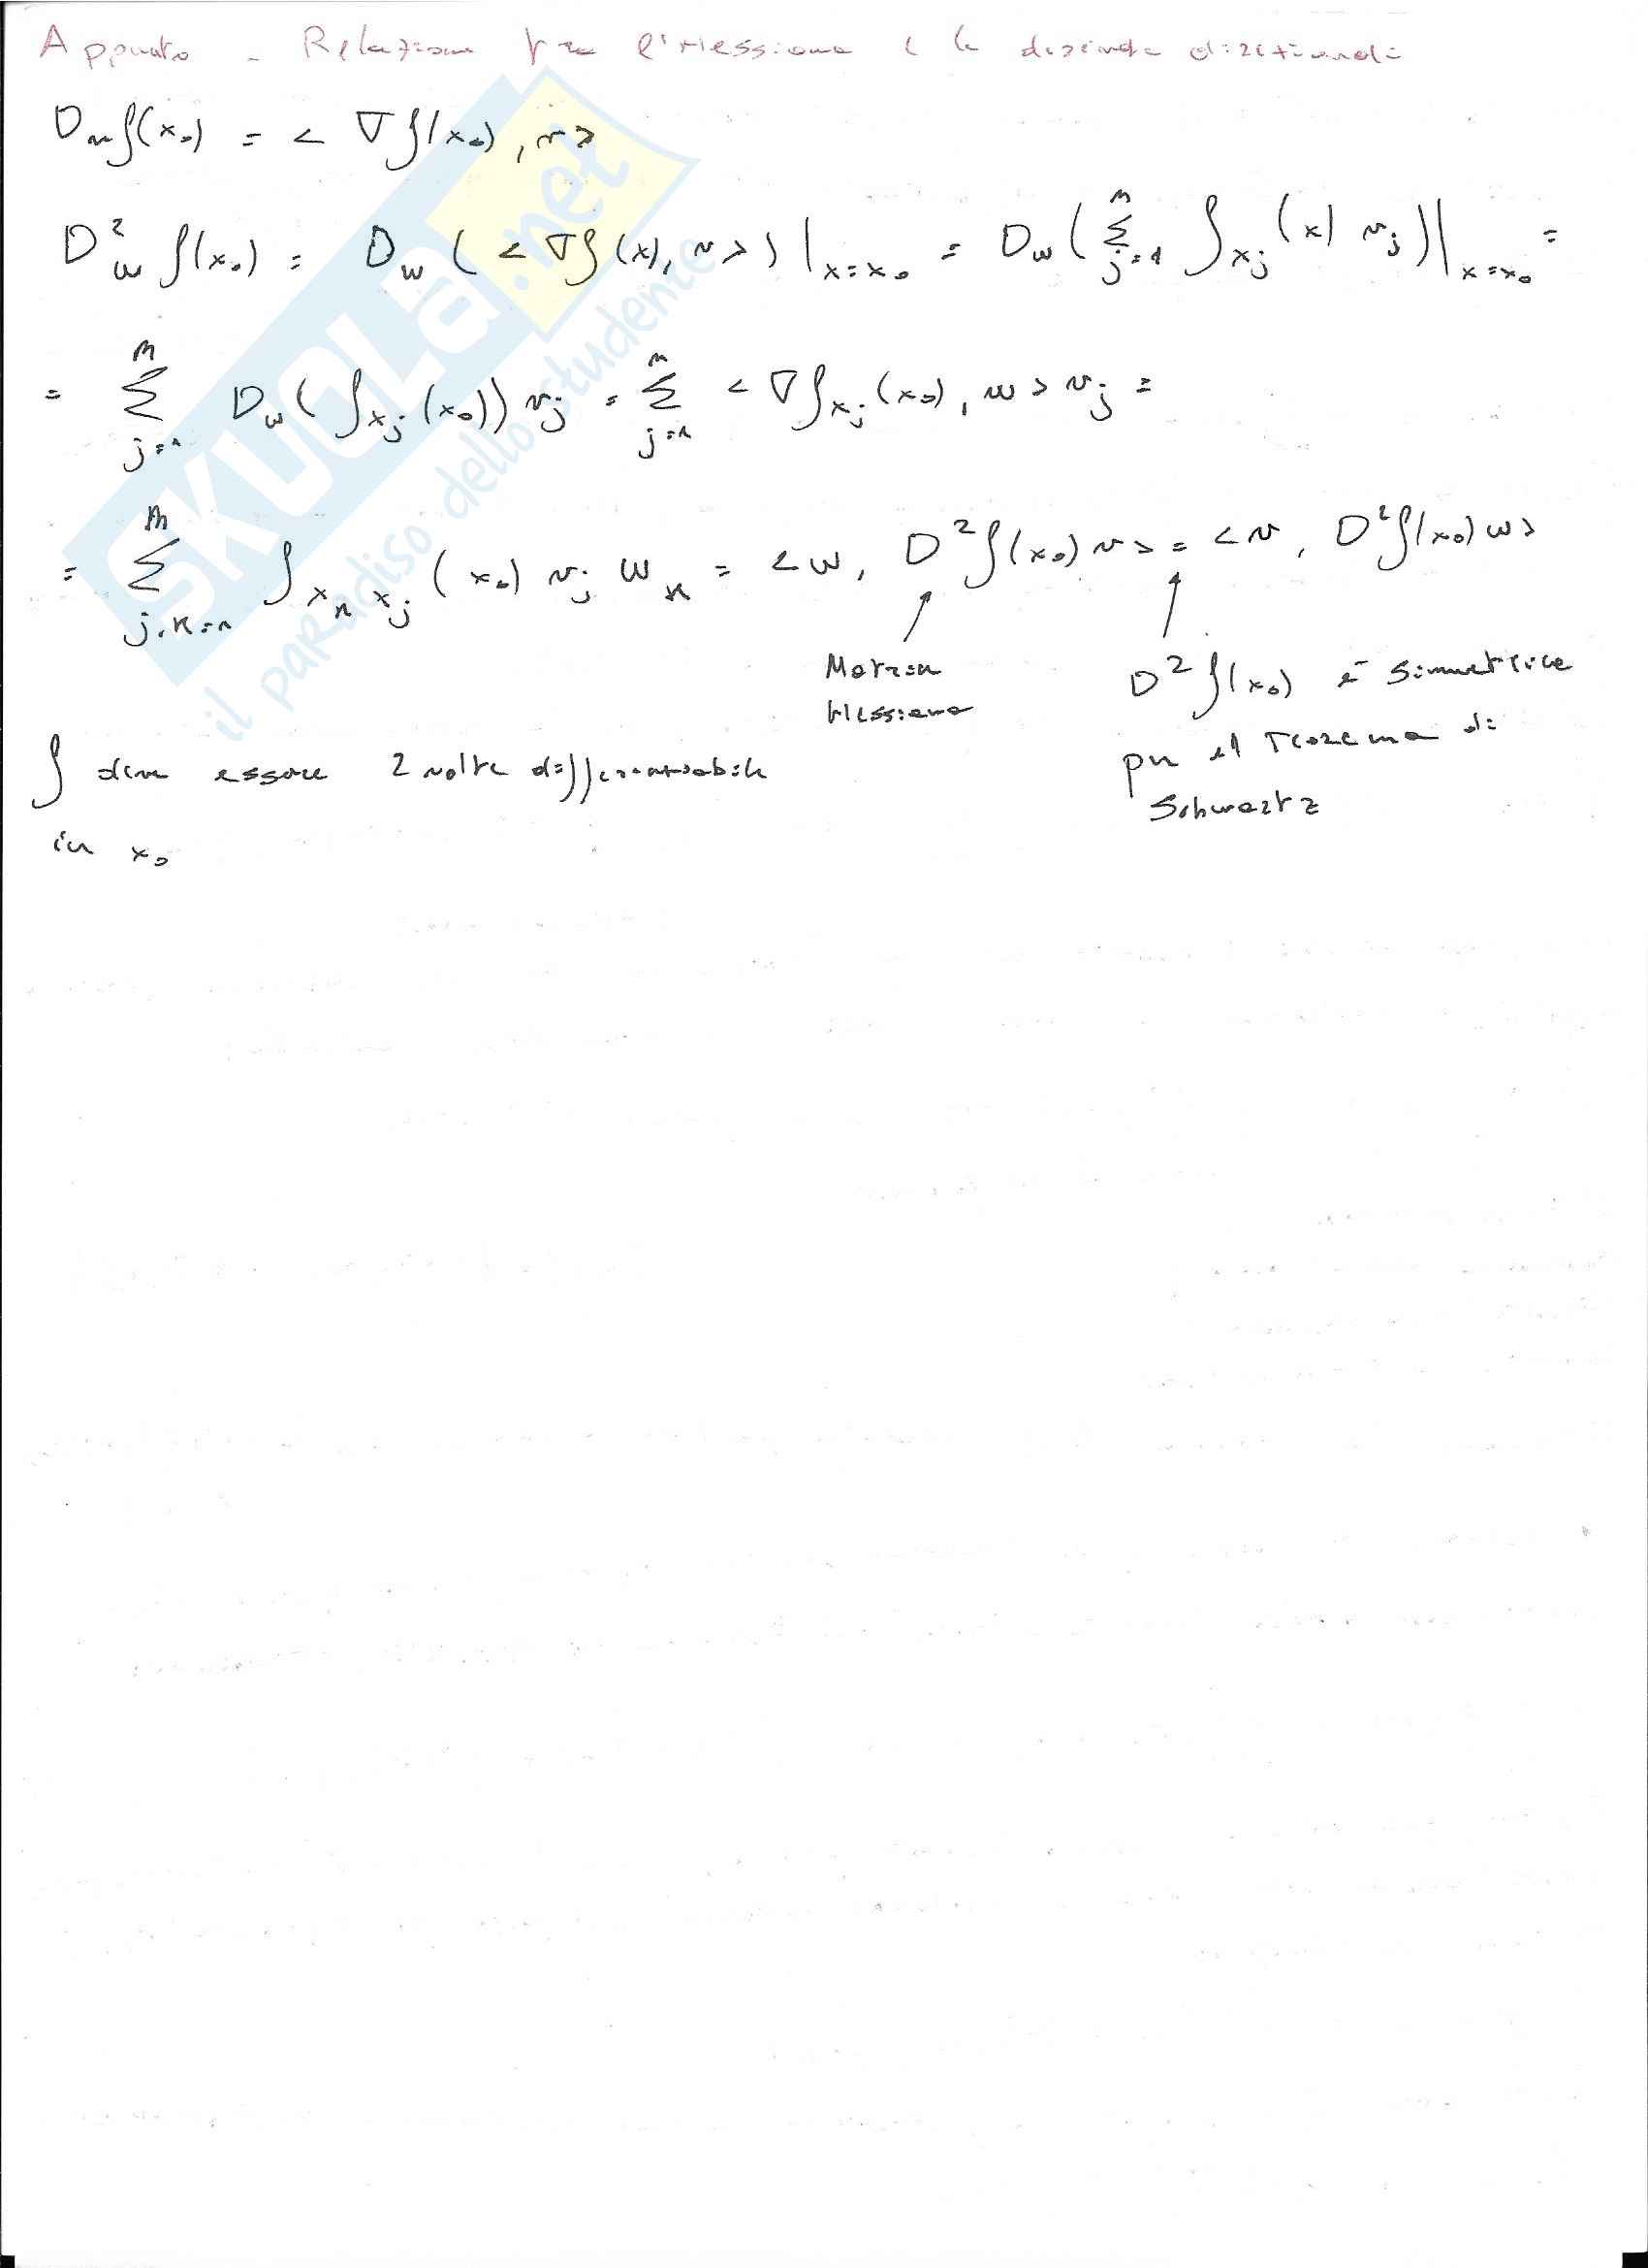 Appunto - Relazione tra l'Hessiana e la derivata direzionale
D_v f(x₀) = < ∇f(x₀), v >
D²_w f(x₀) = D_w ( < ∇f(x), v > ) |_{x=x₀} = D_w ( Σ_{j=1}^{n} f_{xj}(x) v_j ) |_{x=x₀} =
= Σ_{j=1}^{n} D_w ( f_{xj}(x₀) ) v_j = Σ_{j=1}^{n} < ∇f_{xj}(x₀), w > v_j =
= Σ_{j,k=1}^{n} f_{xk xj}(x₀) v_j w_k = < w, D²f(x₀) v > = < v, D²f(x₀) w >
Matrice
Hessiana
D² f(x₀) è simmetrica
per il Teorema di
Schwartz
f deve essere 2 volte differenziabile
in x₀
SKUOLA.net
il paradiso dello studente